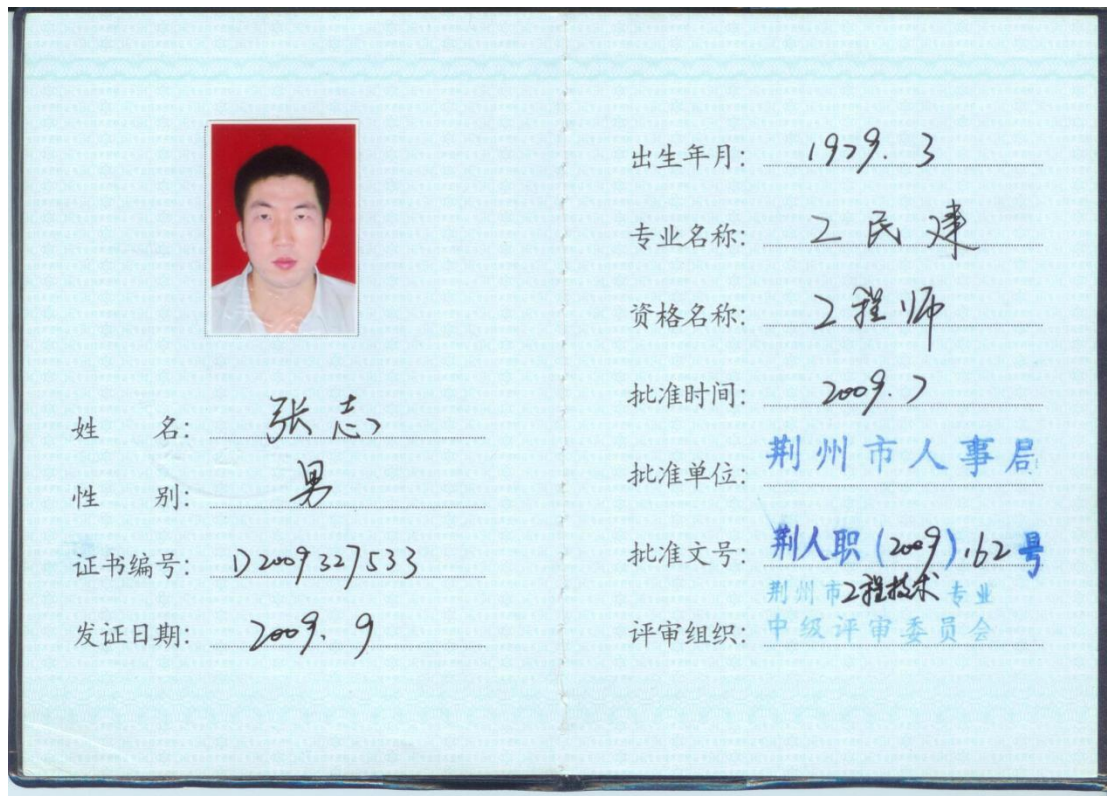 姓 名: 张志
性 别: 男
证书编号: D2009327533
发证日期: 2009.9
出生年月: 1979.3
专业名称: 工民建
资格名称: 工程师
批准时间: 2009.7
批准单位: 荆州市人事局
批准文号: 荆人职(2009)162号
荆州市工程技术专业
评审组织: 中级评审委员会